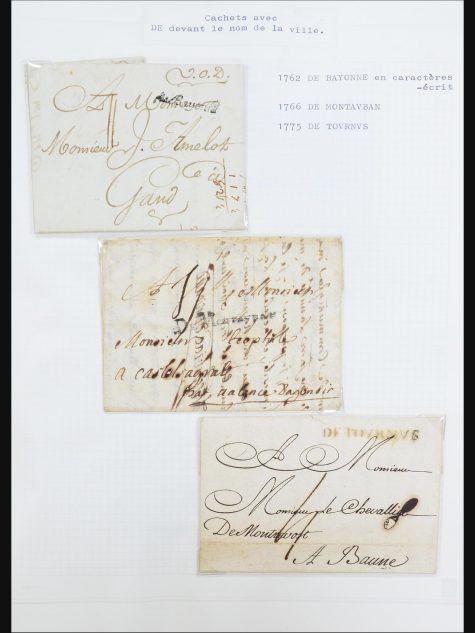 Cachets avec
DE devant le nom de la ville.
1762 DE BAYONNE en caractères
-écrit
1766 DE MONTAVBAN
1775 DE TOVRNVS
A Monsieur
Monsieur J. Amelot
Gand
A Monsieur
Monsieur
a
par valence
DE TOVRNVS
A Monsieur
Monsieur le Chevallier
De Montmort
A Baune